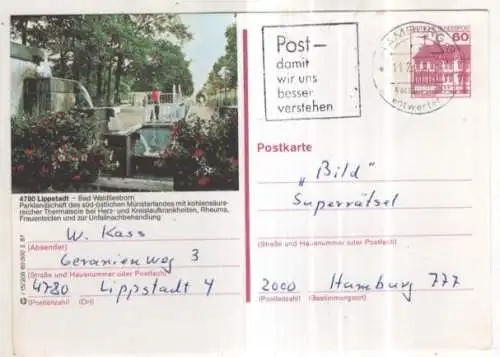 Post-
damit
wir uns
besser
verstehen
DEUTSCHE BUNDESPOST
60
entwertet
4780 Lippstadt – Bad Waldliesborn
Parklandschaft des süd-östlichen Münsterlandes mit kohlensäure-
reicher Thermalsole bei Herz- und Kreislauferkrankheiten, Rheuma,
Frauenleiden und zur Unfallnachbehandlung
W. Kass
(Absender)
Geranienweg 3
(Straße und Hausnummer oder Postfach)
4780 Lippstadt 4
(Postleitzahl) (Ort)
Postkarte
„Bild"
Superrätsel
(Straße und Hausnummer oder Postfach)
2000 Hamburg 777
(Postleitzahl) (Bestimmungsort)